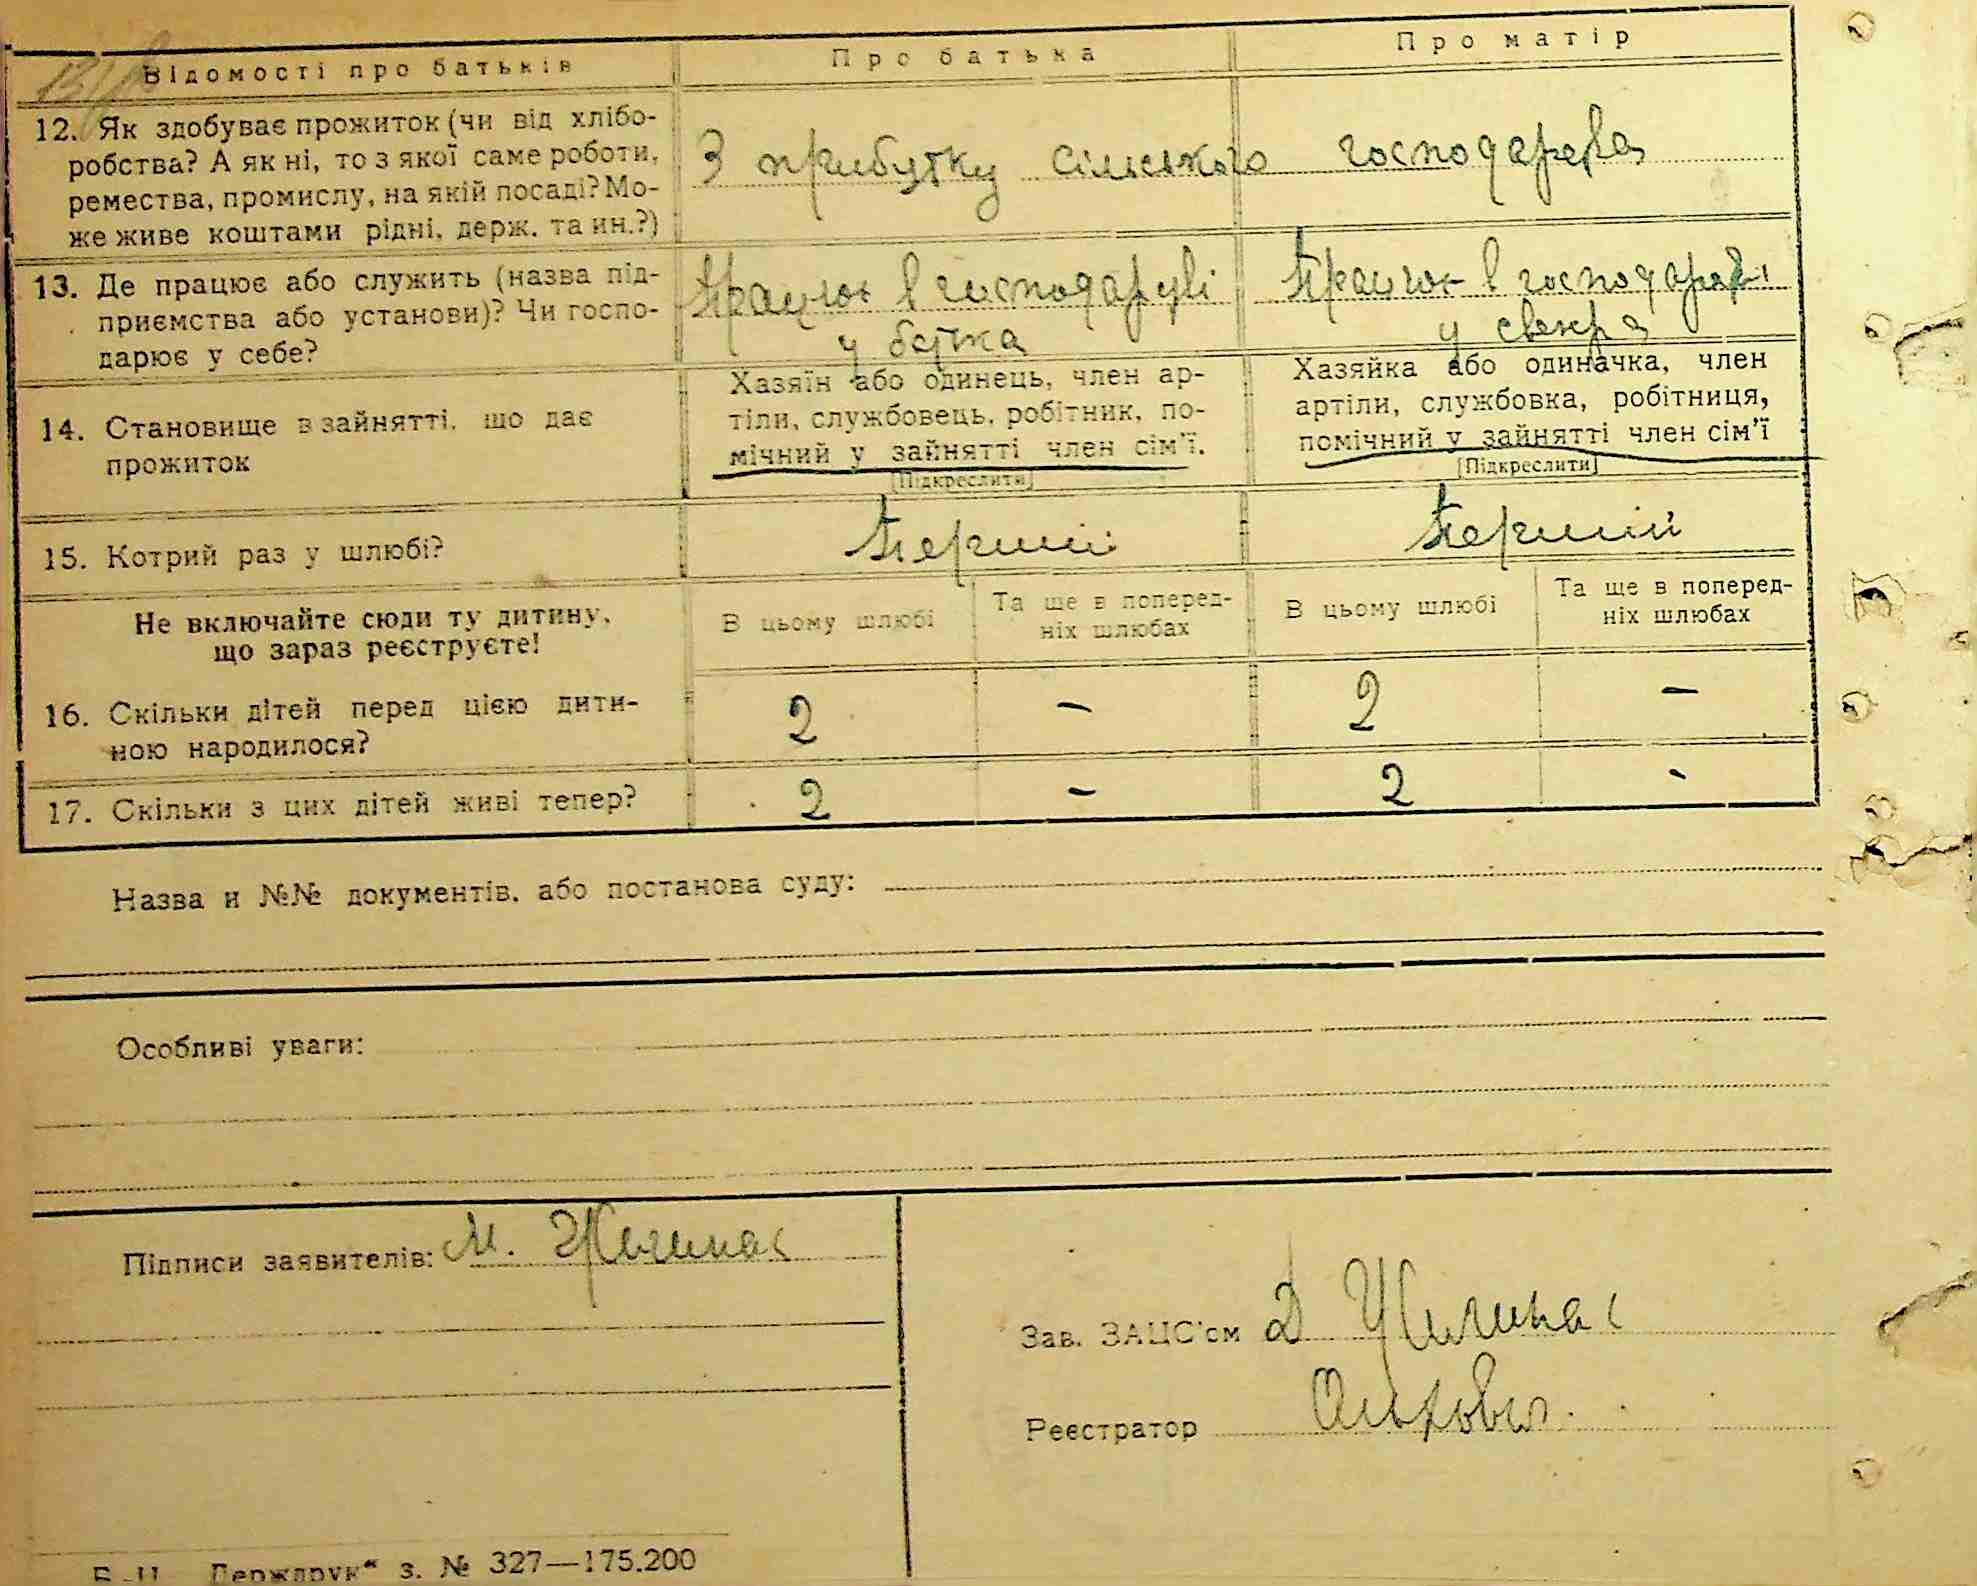 Відомості про батьків
Про батька
Про матір
12. Як здобуває прожиток (чи від хлібо-
робства? А як ні, то з якої саме роботи,
ремества, промислу, на якій посаді? Мо-
же живе коштами рідні, держ. та ин.?)
З прибутку сільського господарства
13. Де працює або служить (назва під-
приємства або установи)? Чи госпо-
дарює у себе?
Працює в господарстві
у батька
Працює в господарстві
у свекра
14. Становище в зайнятті, що дає
прожиток
Хазяїн або одинець, член ар-
тіли, службовець, робітник, по-
мічний у зайнятті член сім'ї.
[Підкреслити]
Хазяйка або одиначка, член
артіли, службовка, робітниця,
помічний у зайнятті член сім'ї
[Підкреслити]
15. Котрий раз у шлюбі?
Перший
Перший
Не включайте сюди ту дитину,
що зараз реєструєте!
В цьому шлюбі
Та ще в поперед-
ніх шлюбах
В цьому шлюбі
Та ще в поперед-
ніх шлюбах
16. Скільки дітей перед цією дити-
ною народилося?
2 - 2 -
17. Скільки з цих дітей живі тепер?
2 - 2 -
Назва и №№ документів, або постанова суду:
Особливі уваги:
Підписи заявителів: М.
Зав. ЗАЦС'ом Д
Реєстратор
Держдрук“ з. № 327—175.200